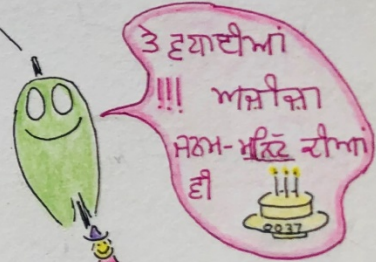 ਤੇ ਵਧਾਈਆਂ
!!! ਅਜ਼ੀਜ਼ਾ
ਜਨਮ- ਦੀਆਂ
ਵੀ
0037